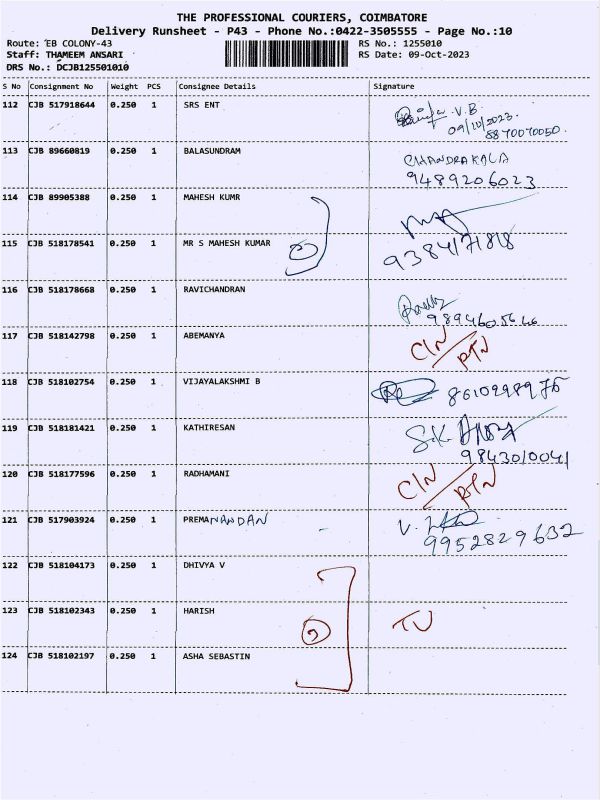 THE PROFESSIONAL COURIERS, COIMBATORE
Delivery Runsheet - P43 - Phone No.:0422-3505555 - Page No.:10
Route: EB COLONY-43 RS No.: 1255010
Staff: THAMEEM ANSARI RS Date: 09-Oct-2023
DRS No.: DCJB125501010
S No Consignment No Weight PCS Consignee Details Signature
112 CJB 517918644 0.250 1 SRS ENT V.B.
09/10/2023.
8870070050.
113 CJB 89660819 0.250 1 BALASUNDRAM CHANDRAKALA
9489206023
114 CJB 89905388 0.250 1 MAHESH KUMR
115 CJB 518178541 0.250 1 MR S MAHESH KUMAR 2 9384171818
116 CJB 518178668 0.250 1 RAVICHANDRAN
9894605646
117 CJB 518142798 0.250 1 ABEMANYA CIN/RTN
118 CJB 518102754 0.250 1 VIJAYALAKSHMI B 8610998975
119 CJB 518181421 0.250 1 KATHIRESAN S.K.
9843010041
120 CJB 518177596 0.250 1 RADHAMANI CIN/RTN
121 CJB 517903924 0.250 1 PREMANANDAN V.
9952829632
122 CJB 518104173 0.250 1 DHIVYA V
123 CJB 518102343 0.250 1 HARISH TU
124 CJB 518102197 0.250 1 ASHA SEBASTIN